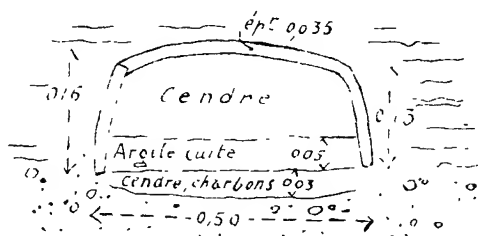 épr 0,035
0,16
Cendre
Argile cuite 0,05
Cendre, charbons 0,03
0,50